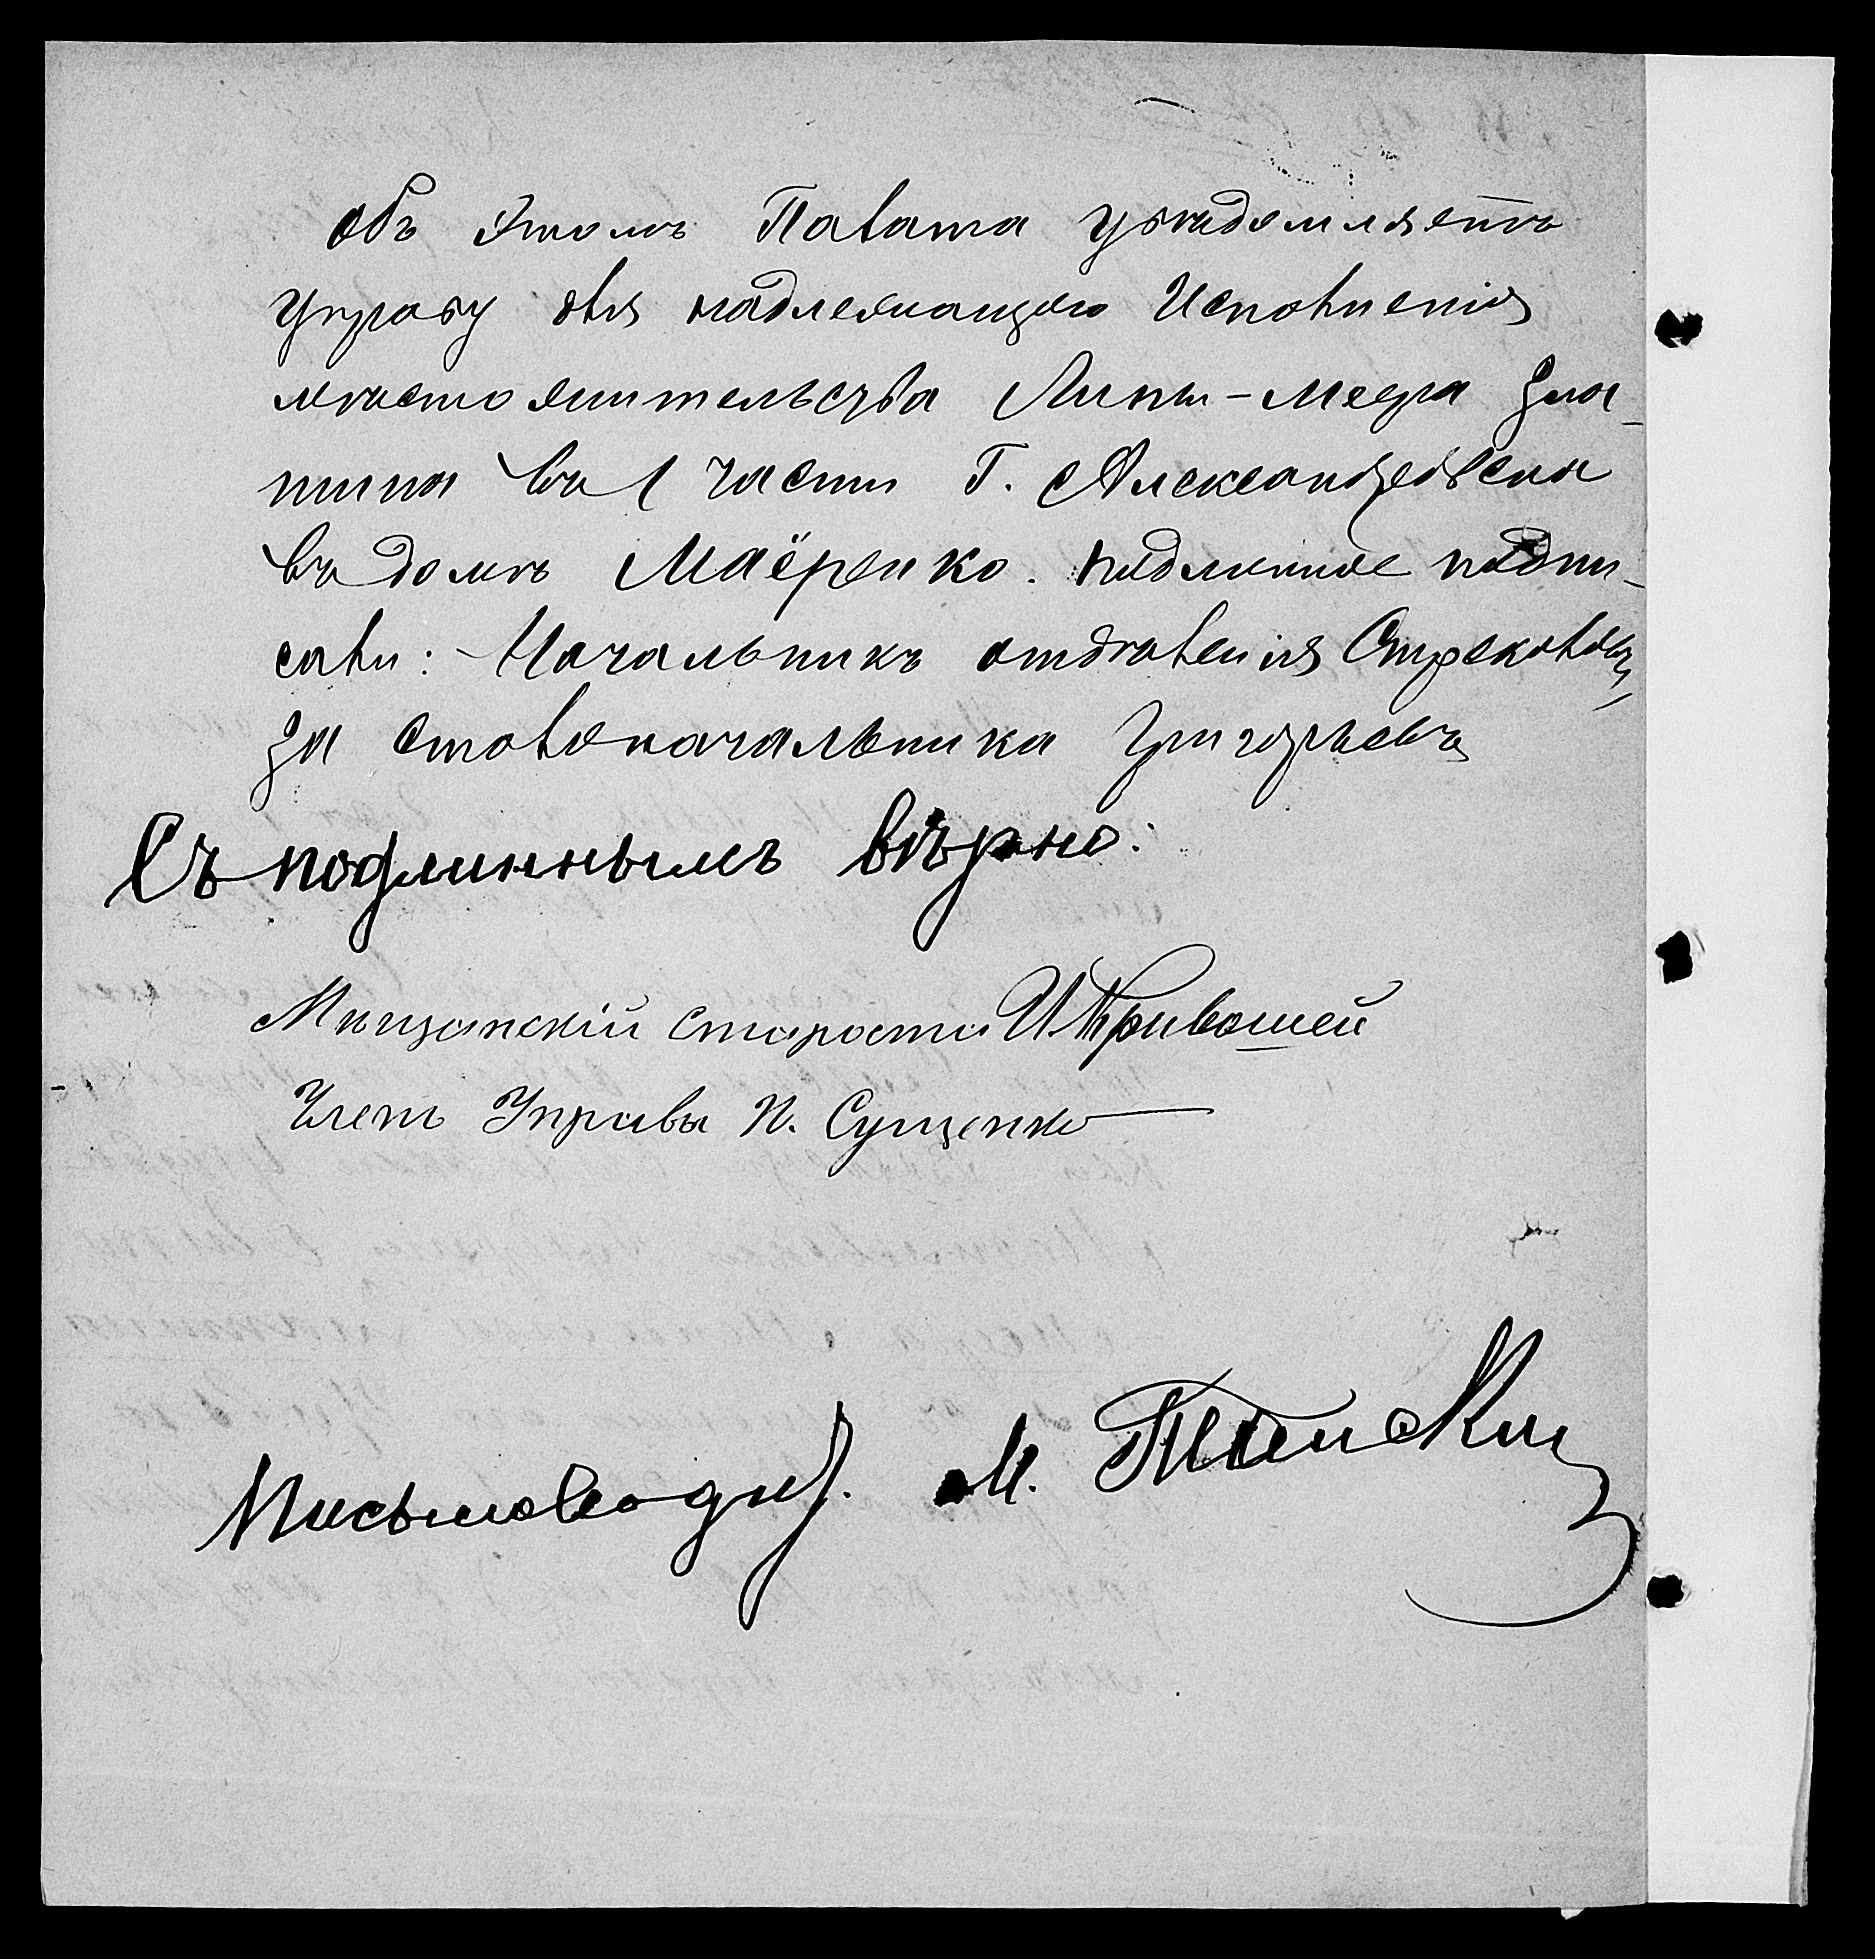 объ этомъ Палата увѣдомляетъ
Управу для надлежащаго Исполненія
мѣстожительства Липы-Меера Зла-
тина въ 1 части Г. Александровска
въ домѣ Маёренко. подлинное подпи-
сали: Начальникъ отдѣленія Стрекаловъ,
за столоначальника Григорьевъ
Съ подлиннымъ вѣрно:
Мѣщанскій Староста И Кривошей
Членъ Управы П. Сущенко
Письмоводит. М.